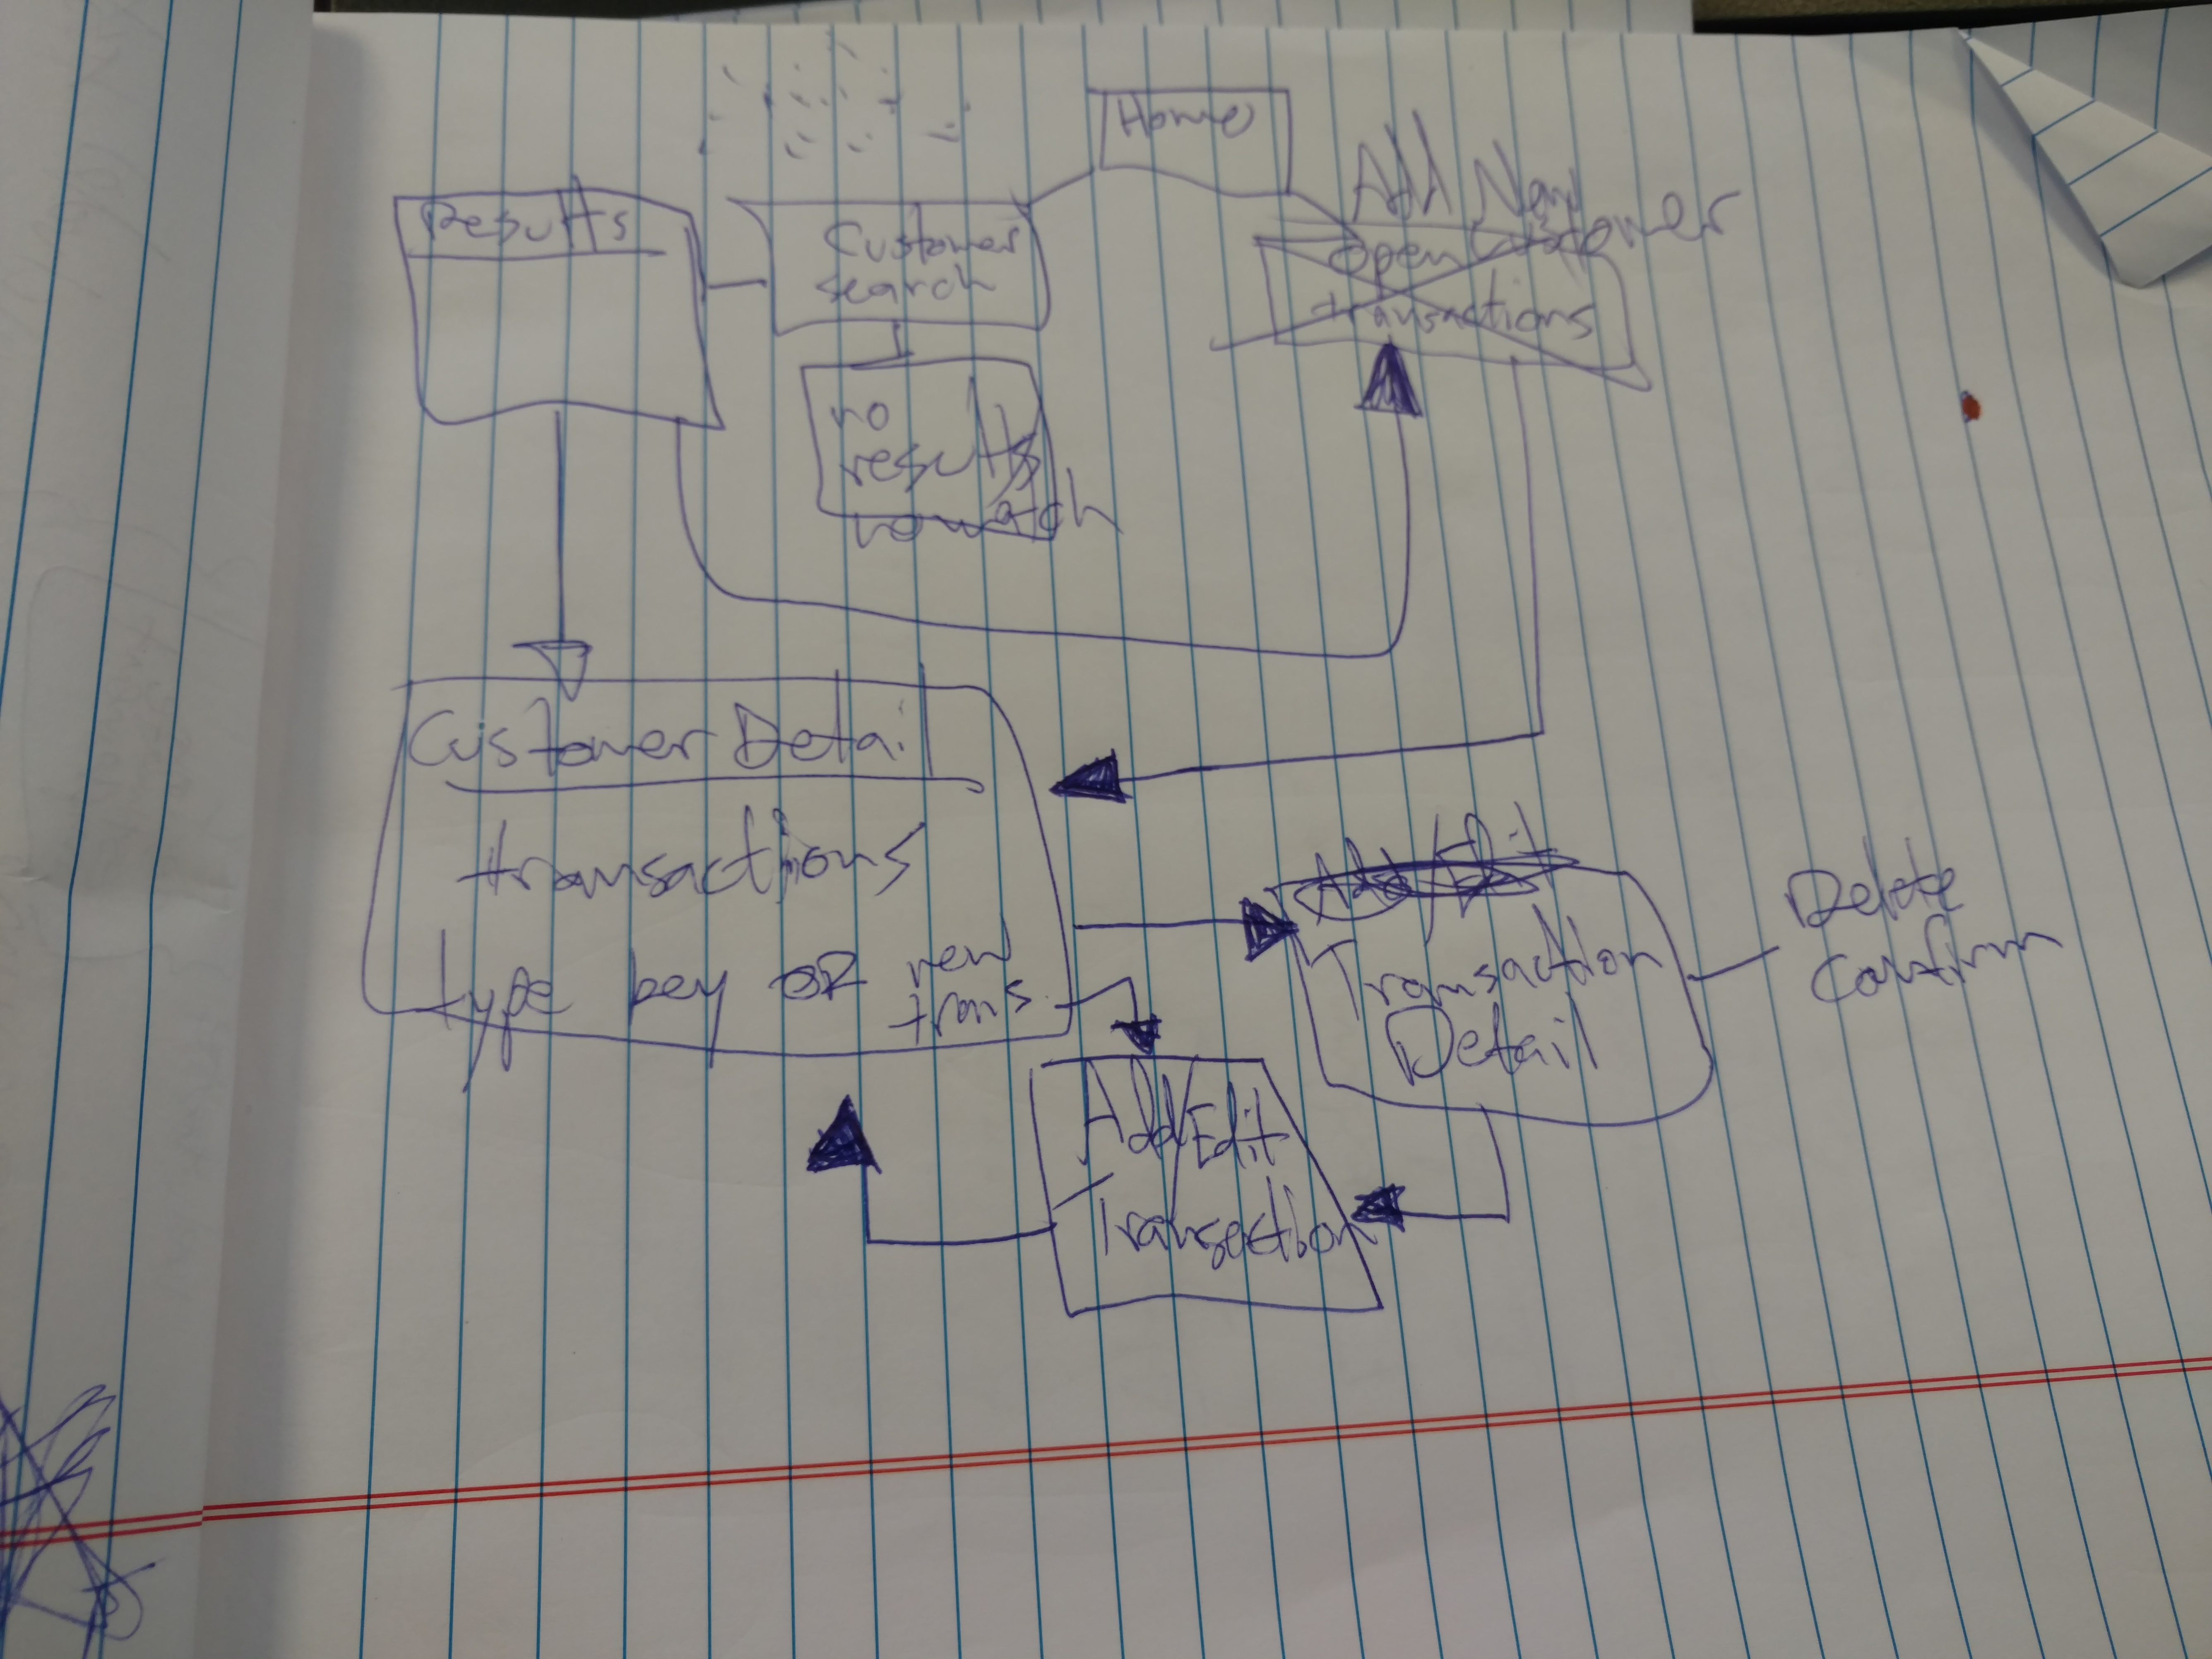 Home
Results
Customer
search
Add New
Customer
open
transactions
no
results
Customer Detail
transactions
type key OR new
trans
Add/Edit
Transaction
Detail
Delete
Confirm
Add/Edit
Transaction